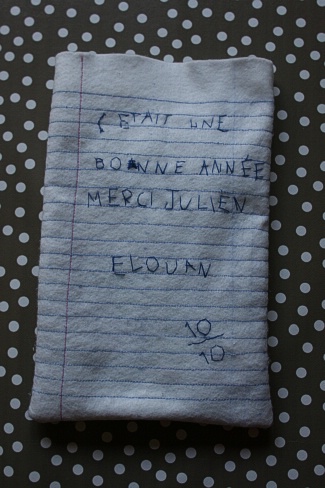 C ÉTAIT UNE
BONNE ANNÉE
MERCI JULIEN
ELOUAN
10
10